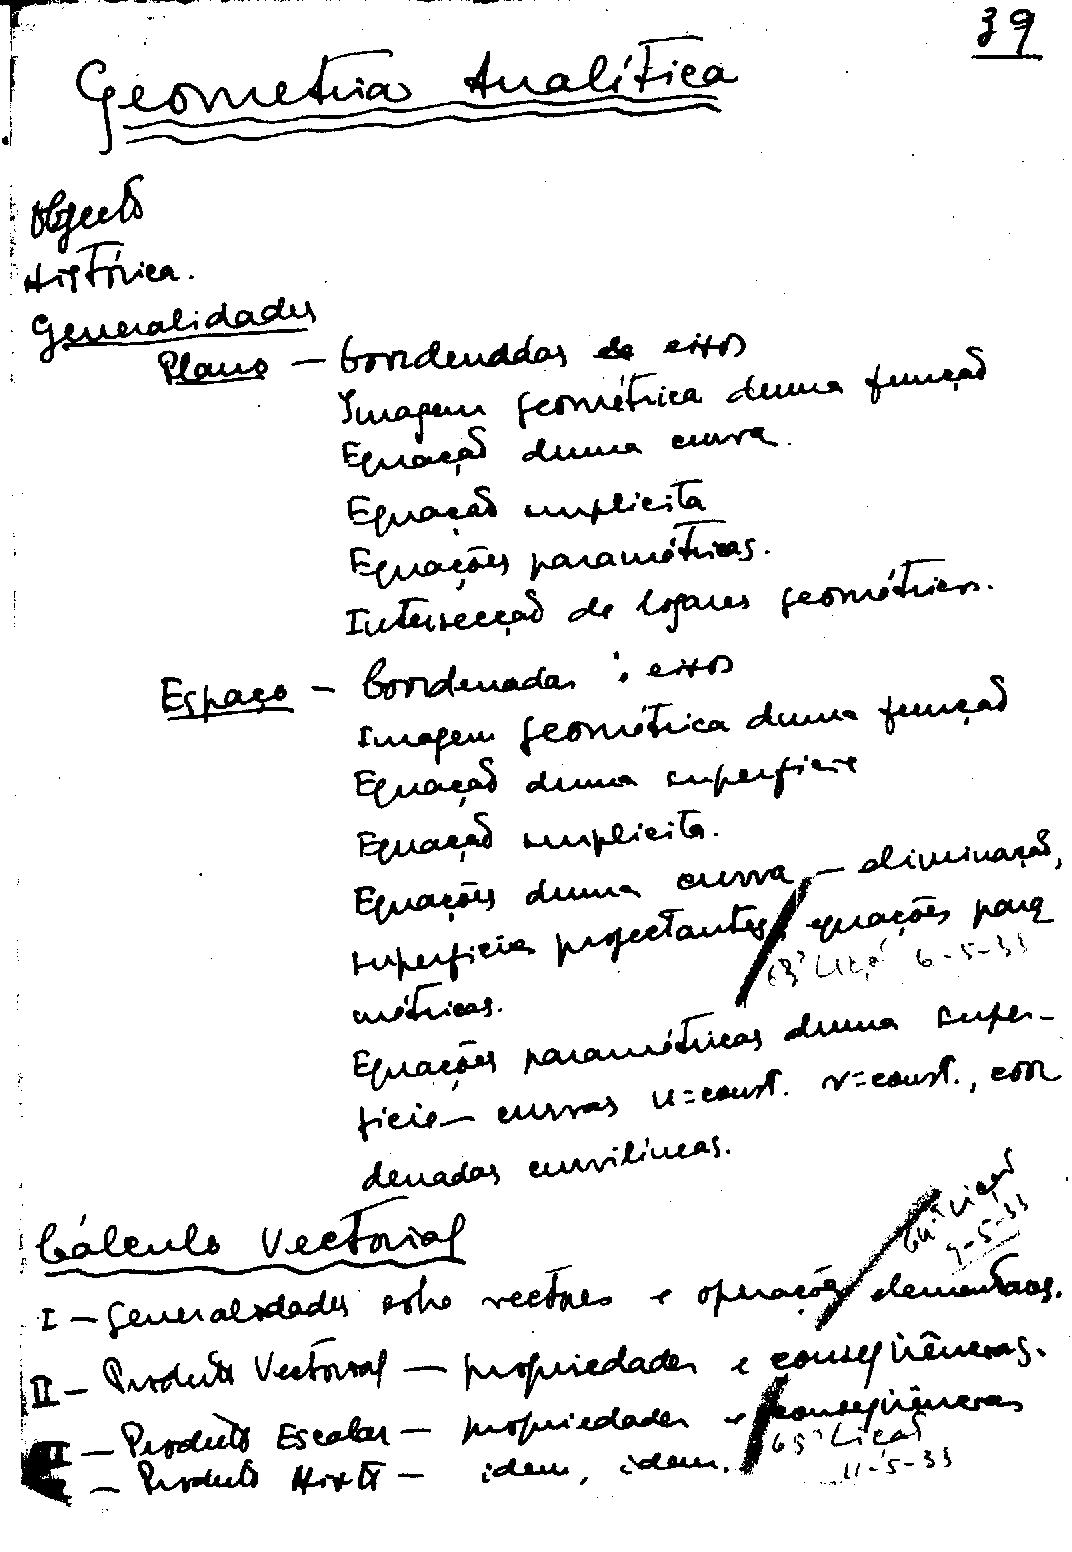 39
Geometria Analítica
Objecto
Histórica.
Generalidades
Plano — Coordenadas e eixos
Imagem geométrica duma função
Equação duma curva.
Equação implicita
Equações paramétricas.
Intersecção de logares geométricos.
Espaço — Coordenadas : eixos
Imagem geométrica duma função
Equação duma superficie
Equação implicita.
Equações duma curva — eliminação,
superficies projectantes, equações para
métricas.
Equações paramétricas duma super-
ficie — curvas u=const. v=const., coor
denadas curvilíneas.
63ª Lição 6-5-33
Cálculo Vectorial
64ª Lição
9-5-33
I — Generalidades sobre vectores e operações elementares.
II — Produto Vectorial — propriedades e conseqüências.
— Produto Escalar — propriedades e conseqüências
— Produto Mixto — idem, idem.
65ª Lição
11-5-33